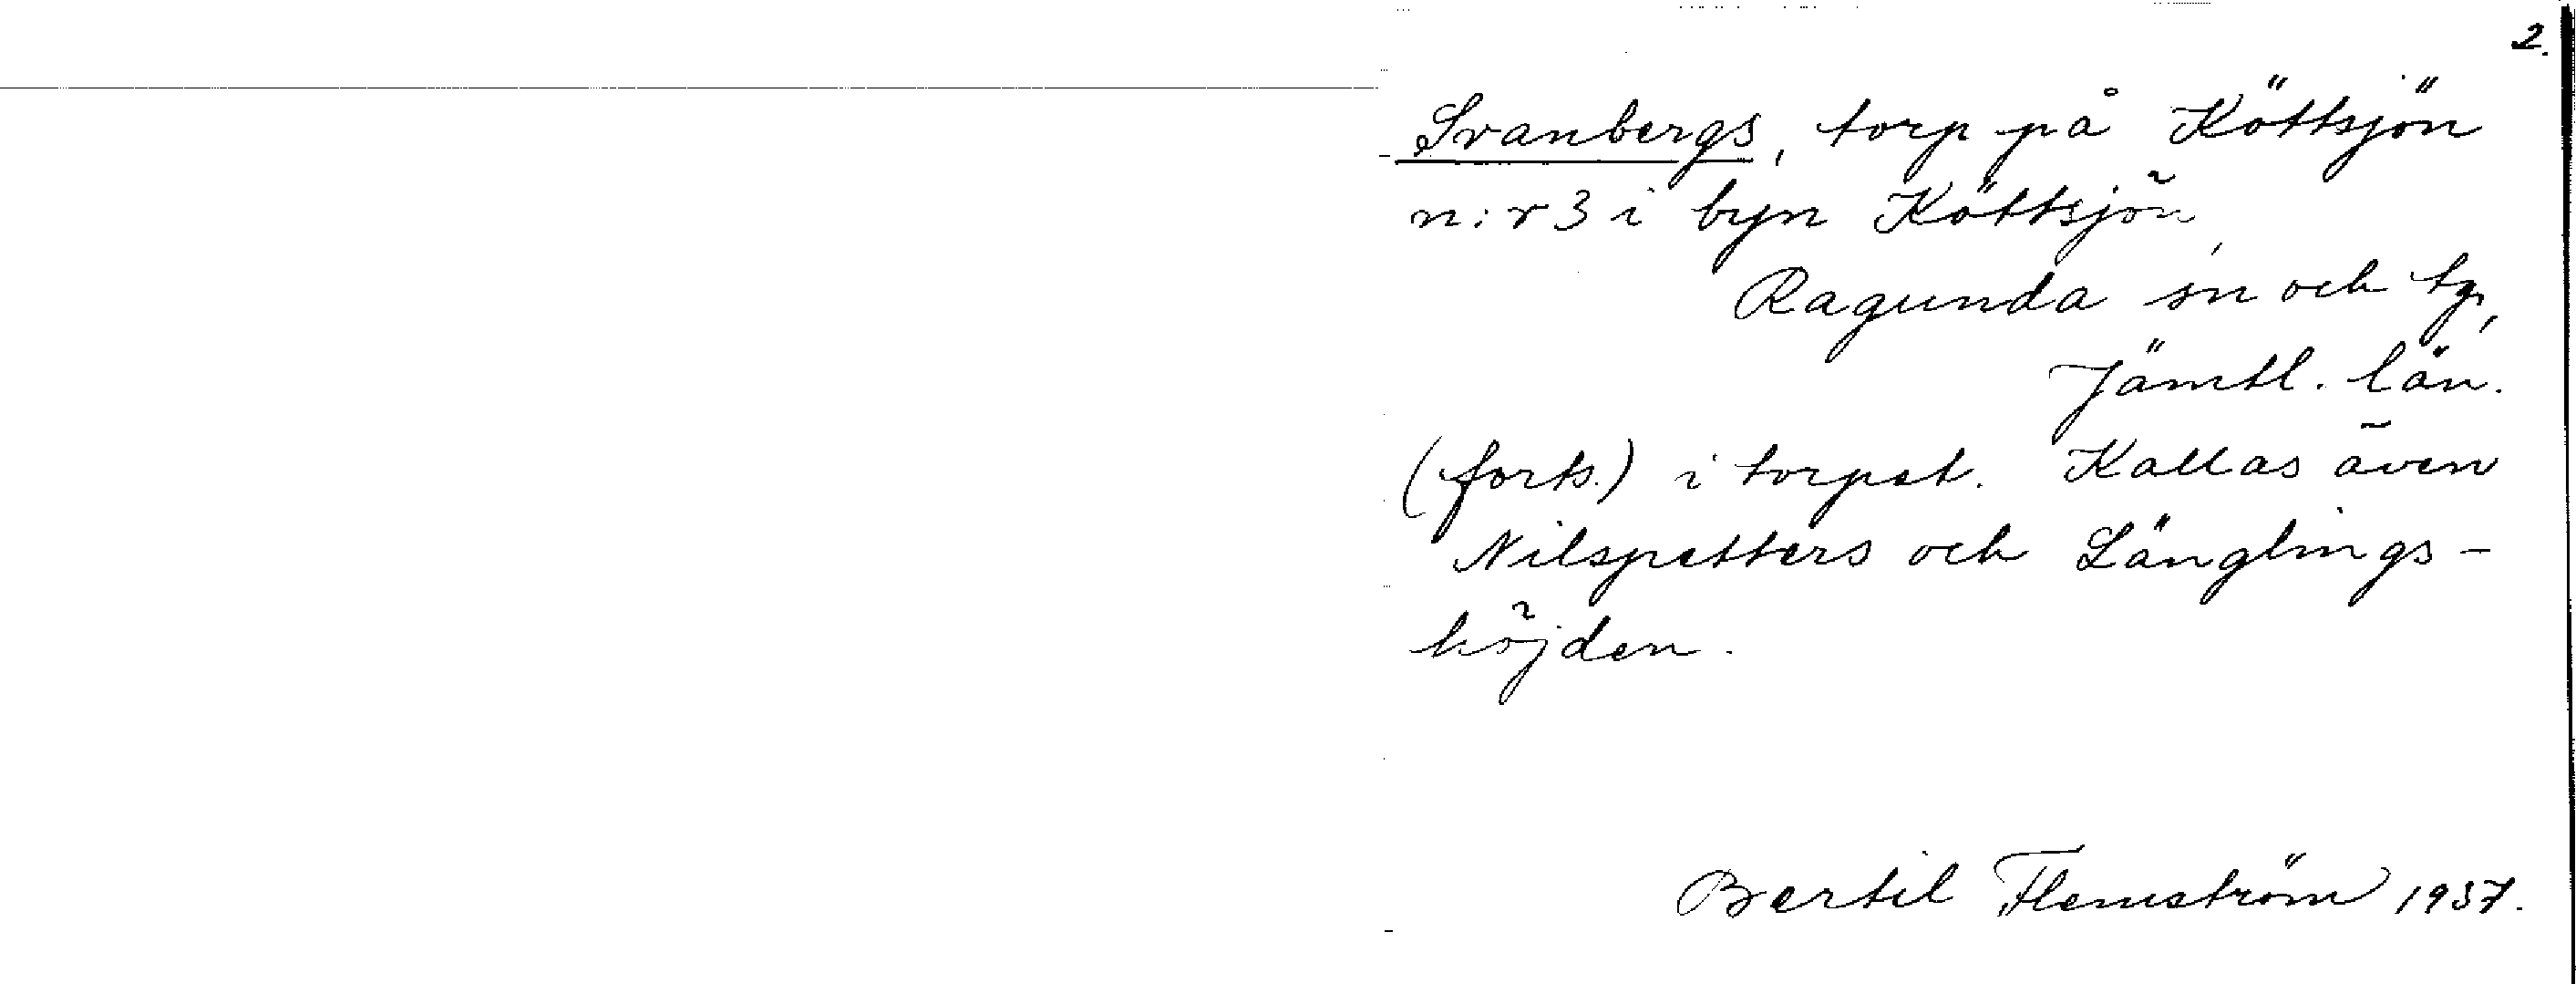 2.
Svanbergs, torp på Köttsjön
n:r 3 i byn Köttsjön,
Ragunda sn och tg,
Jämtl. län.
(forts.) i torpet. Kallas även
Nilspetters och Länglings-
höjden.
Bertil Flemström 1937.